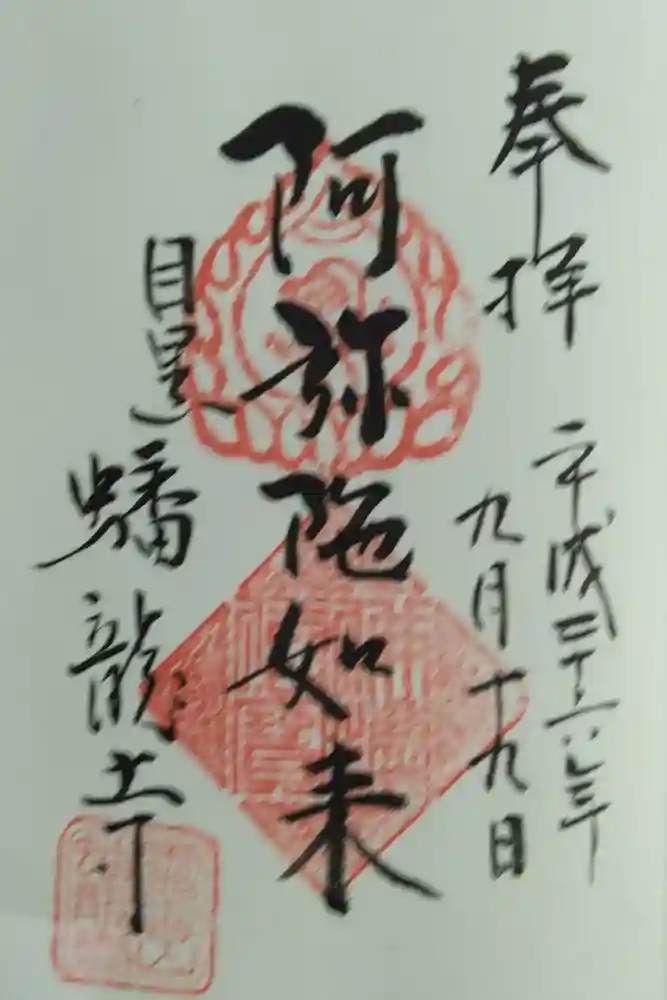 奉拝
平成二十六年
九月十九日
阿弥陀如来
目黒
蟠龍